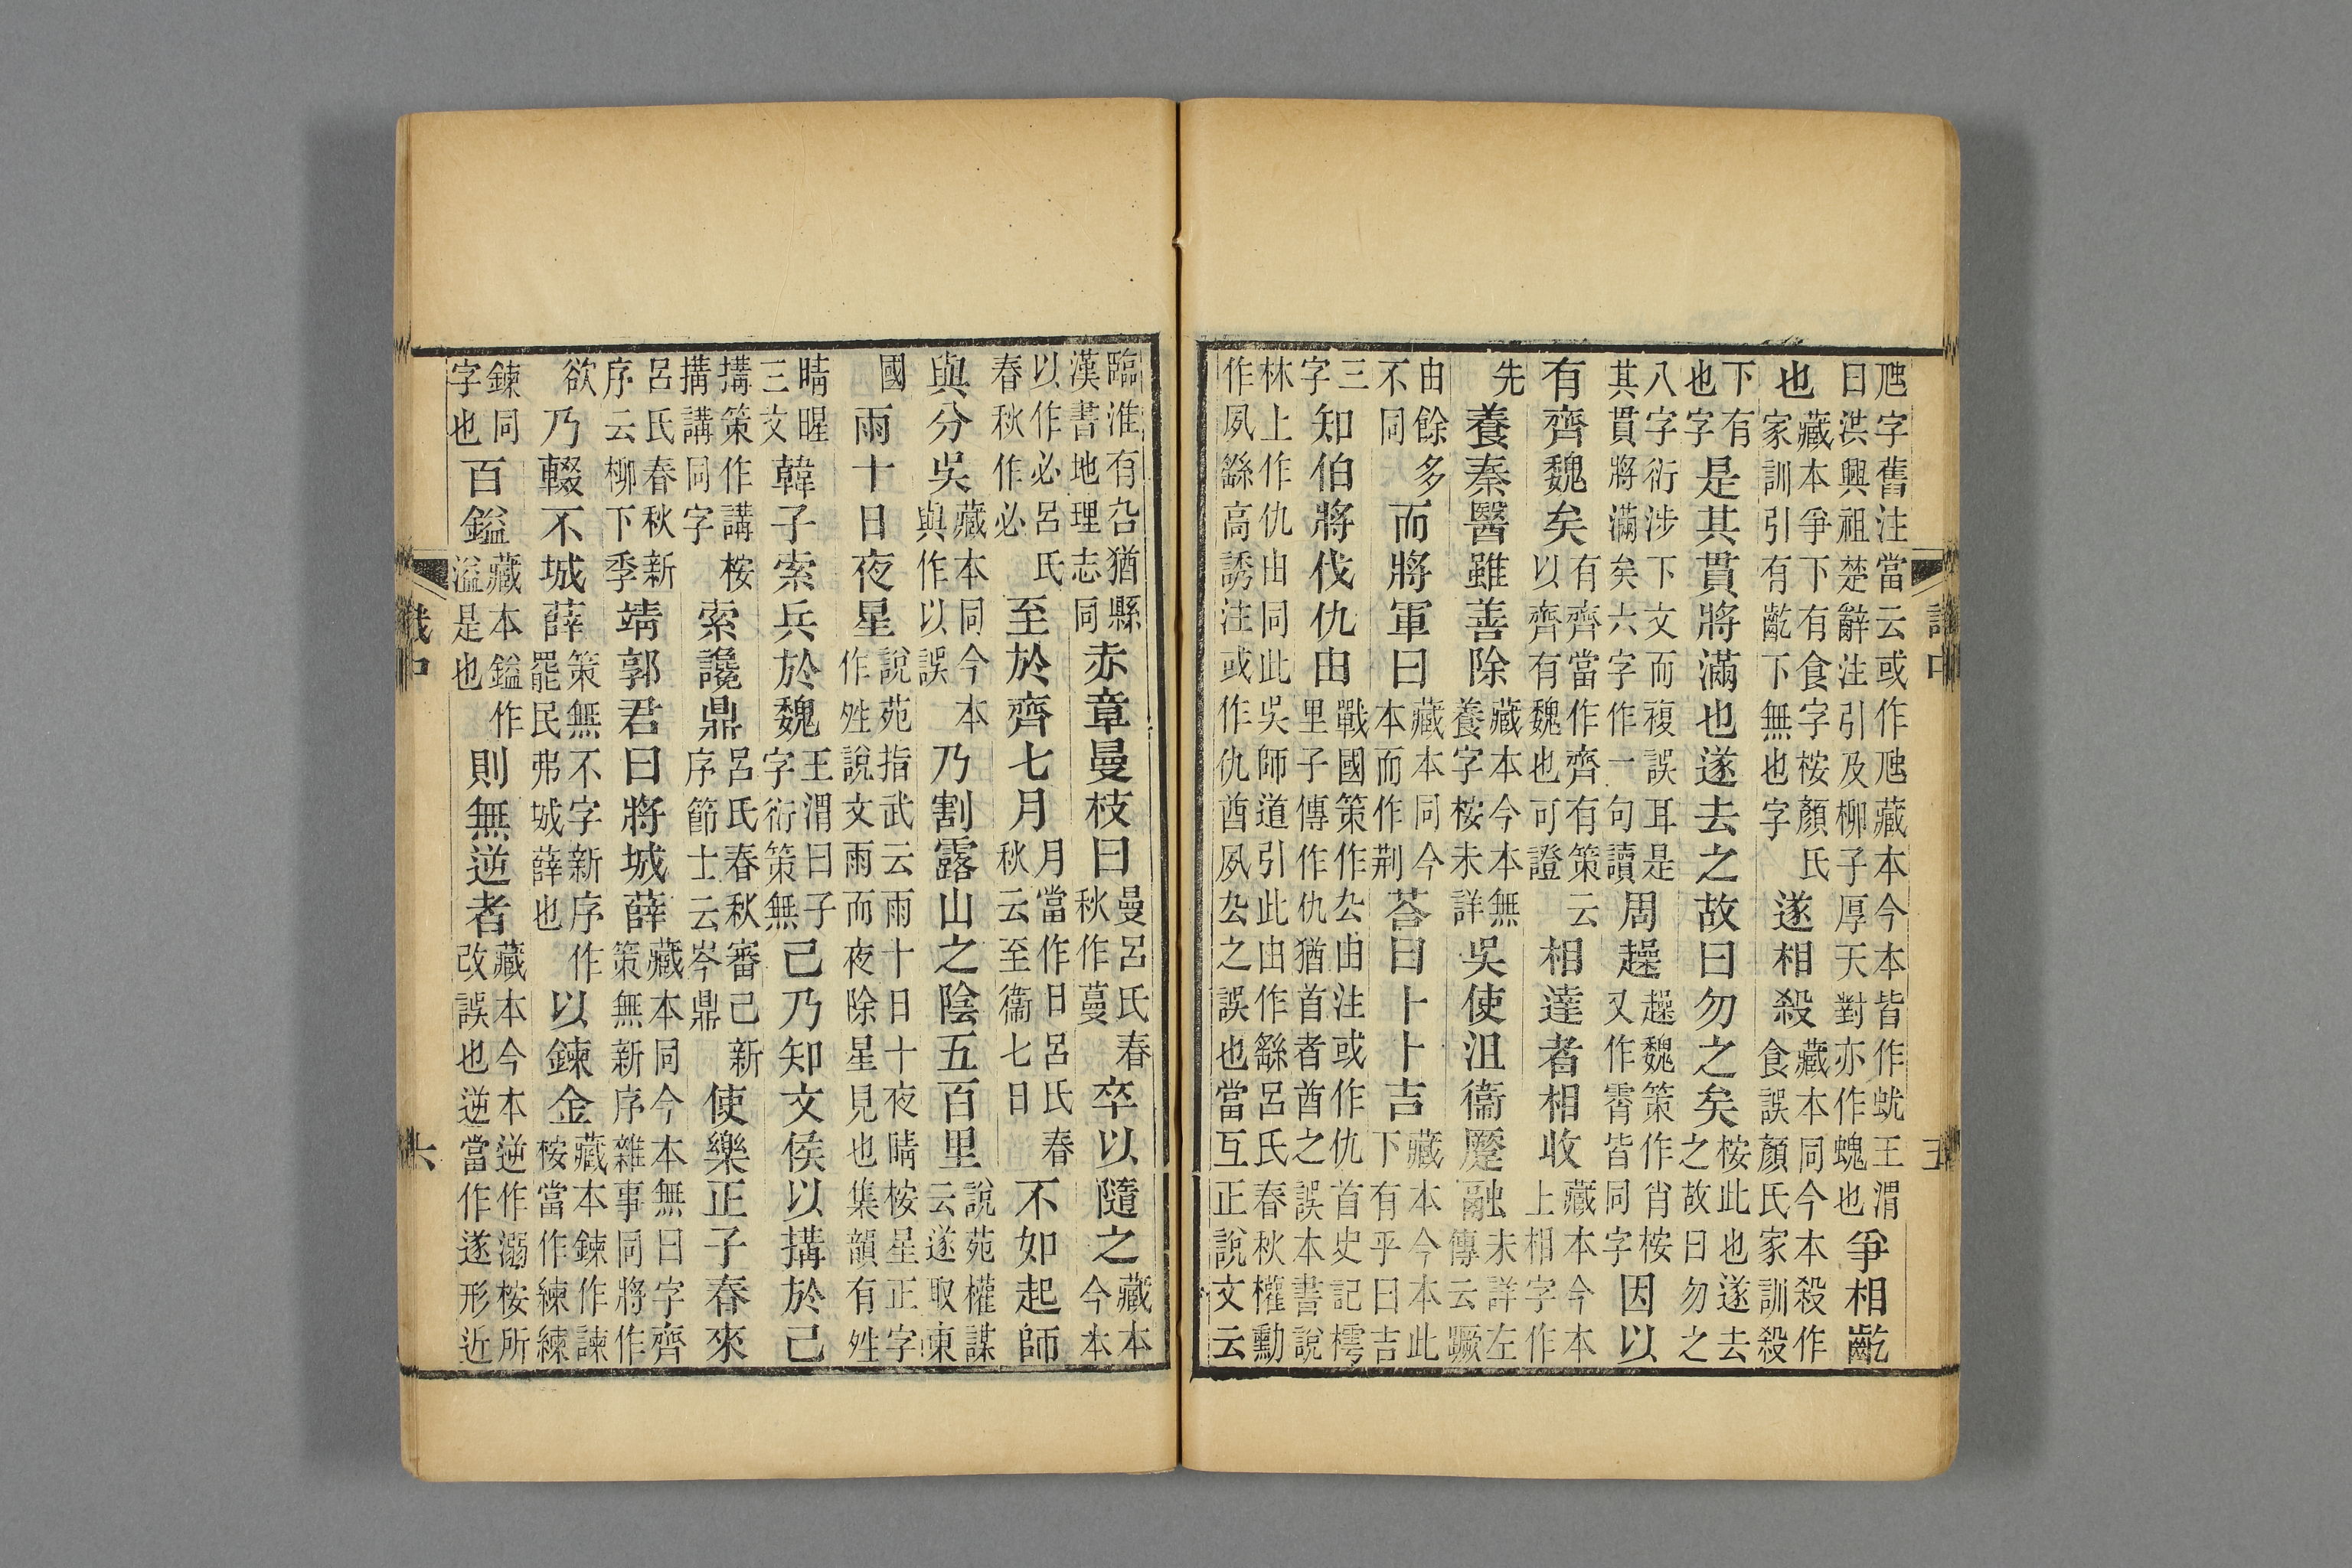 虺字舊注當云或作虺藏本今本皆作蚘王渭曰洪興祖楚辭注引及柳子厚天對亦作螝也爭相齕
也藏本爭下有食字桉顏氏家訓引有齕下無也字遂相殺藏本同今本殺作食誤顏氏家訓殺
下有也字是其貫將滿也遂去之故曰勿之矣桉此也遂去之故曰勿之
八字衍涉下文而複誤耳是其貫將滿矣六字作一句讀周趮趮魏策作肖桉又作霄皆同字因以
有齊魏矣有齊當作齊有策云以齊有魏也可證相達者相收藏本今本上相字作
先養秦醫雖善除藏本今本無養字桉未詳吳使沮衞蹷融未詳左傳云蹶
由餘多不同而將軍曰藏本同今本而作荆荅曰卜卜吉藏本今本此下有乎曰吉
三字知伯將伐仇由戰國策作厹由注或作仇首史記樗里子傳作仇猶首者酋之誤本書說
林上作仇由同此吳師道引此由作繇呂氏春秋權勳作夙繇高誘注或作仇酋夙厹之誤也當互正說文云
臨淮有厹猶縣漢書地理志同赤章曼枝曰曼呂氏春秋作蔓卒以隨之藏本今本
以作必呂氏春秋作必至於齊七月月當作日呂氏春秋云至衞七日不如起師
與分吳藏本同今本與作以誤乃割露山之陰五百里說苑權謀云遂取東
國雨十日夜星說苑指武云雨十日十夜晴桉星正字作姓說文雨而夜除星見也集韻有姓
晴暒三文韓子索兵於魏王渭曰子字衍策無己乃知文侯以搆於己
搆策作講桉搆講同字索讒鼎呂氏春秋審己新序節士云岑鼎使樂正子春來
呂氏春秋新序云柳下季靖郭君曰將城薛藏本同今本無曰字齊策無新序雜事同將作
欲乃輟不城薛策無不字新序作罷民弗城薛也以鍊金藏本鍊作諫桉當作練練
鍊同字也百鎰藏本鎰作溢是也則無逆者藏本今本逆作溺桉所改誤也逆當作遂形近